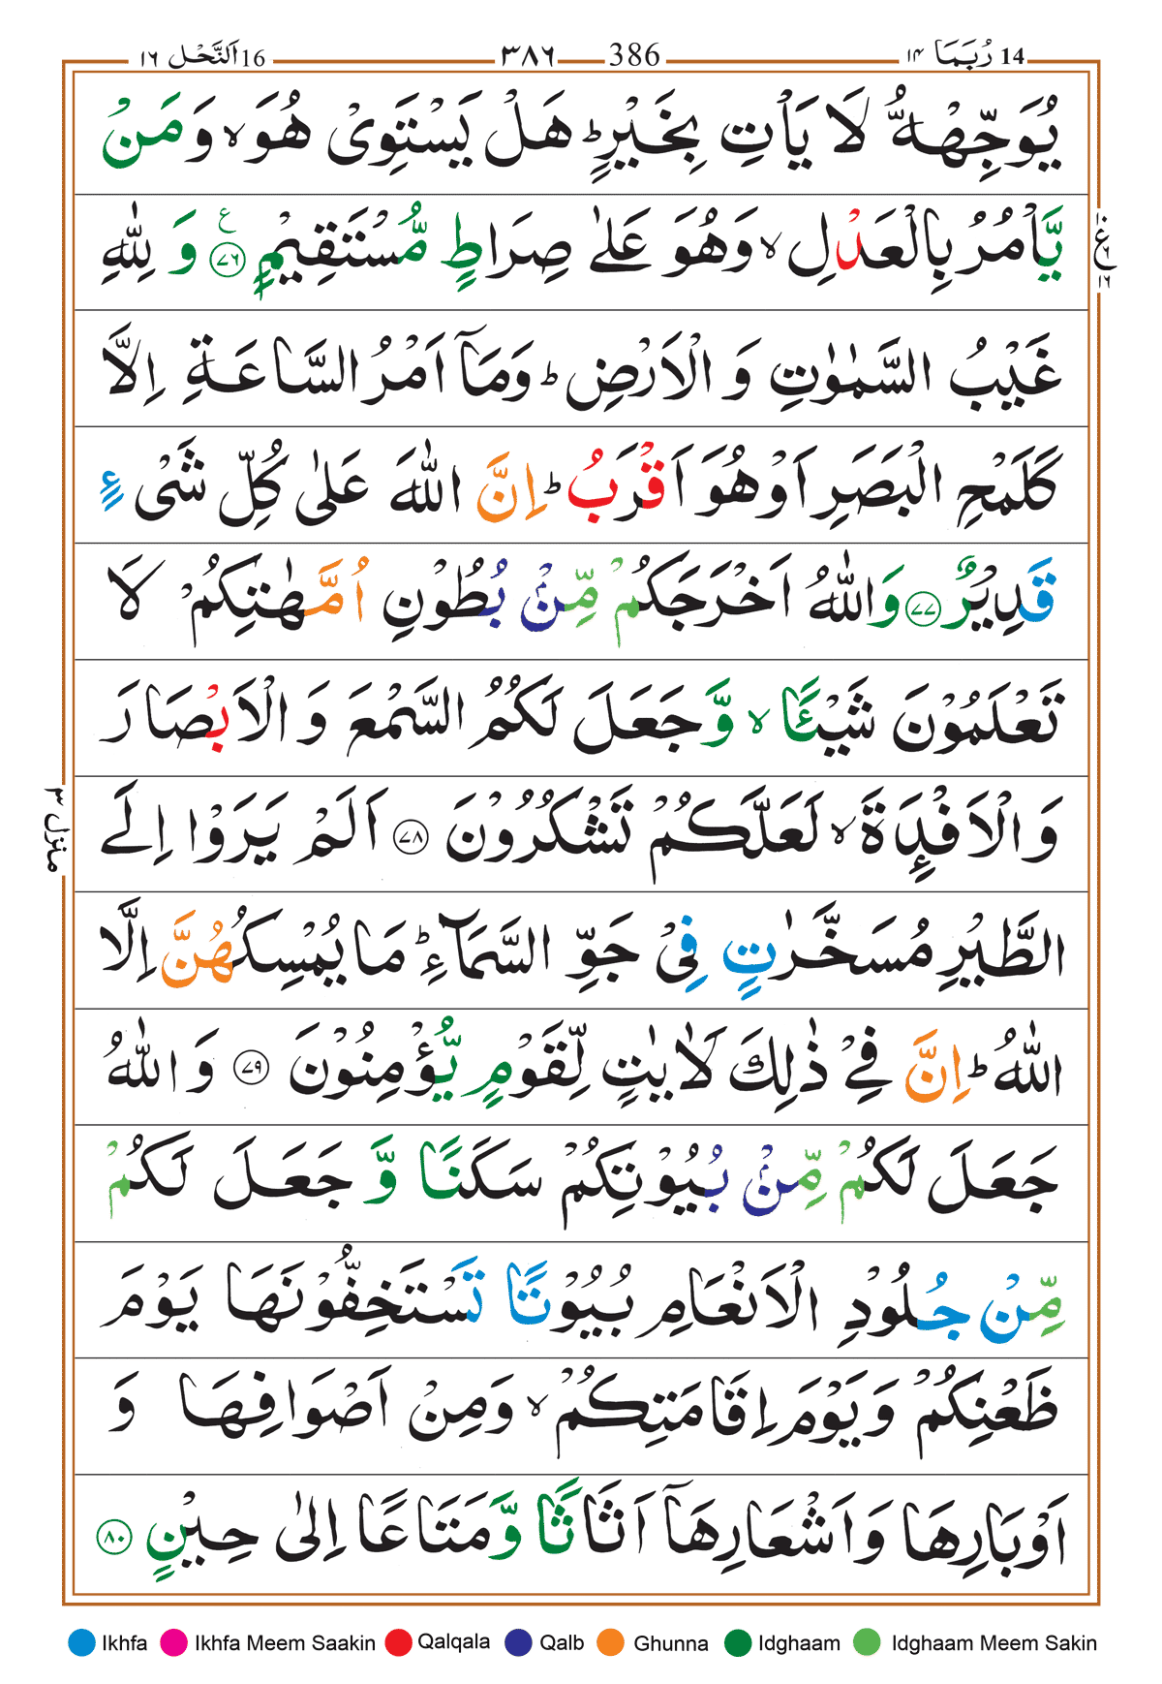 14 رُبَمَا ۱۴
386 — ۳۸۶
16 اَلنَّحْل ۱۶
يُوَجِّهْهُّ لَا يَاْتِ بِخَيْرٍؕ هَلْ يَسْتَوِىْ هُوَۙ وَمَنْ
يَّاْمُرُ بِالْعَدْلِۙ وَهُوَ عَلٰى صِرَاطٍ مُّسْتَقِيْمٍ ﴿۷۶﴾ ع وَ لِلّٰهِ
غَيْبُ السَّمٰوٰتِ وَ الْاَرْضِؕ وَمَاۤ اَمْرُ السَّاعَةِ اِلَّا
كَلَمْحِ الْبَصَرِ اَوْ هُوَ اَقْرَبُؕ اِنَّ اللّٰهَ عَلٰى كُلِّ شَىْءٍ
قَدِيْرٌ ﴿۷۷﴾ وَاللّٰهُ اَخْرَجَكُمْ مِّنْۢ بُطُوْنِ اُمَّهٰتِكُمْ لَا
تَعْلَمُوْنَ شَيْـًٔاۙ وَّ جَعَلَ لَكُمُ السَّمْعَ وَ الْاَبْصَارَ
وَ الْاَفْـِٕدَةَۙ لَعَلَّكُمْ تَشْكُرُوْنَ ﴿۷۸﴾ اَلَمْ يَرَوْا اِلَى
الطَّيْرِ مُسَخَّرٰتٍ فِىْ جَوِّ السَّمَآءِؕ مَا يُمْسِكُهُنَّ اِلَّا
اللّٰهُؕ اِنَّ فِىْ ذٰلِكَ لَاٰيٰتٍ لِّقَوْمٍ يُّؤْمِنُوْنَ ﴿۷۹﴾ وَ اللّٰهُ
جَعَلَ لَكُمْ مِّنْۢ بُيُوْتِكُمْ سَكَنًا وَّ جَعَلَ لَكُمْ
مِّنْ جُلُوْدِ الْاَنْعَامِ بُيُوْتًا تَسْتَخِفُّوْنَهَا يَوْمَ
ظَعْنِكُمْ وَيَوْمَ اِقَامَتِكُمْۙ وَمِنْ اَصْوَافِهَا وَ
اَوْبَارِهَا وَاَشْعَارِهَاۤ اَثَاثًا وَّمَتَاعًا اِلٰى حِيْنٍ ﴿۸۰﴾
منزل ۳
Ikhfa Ikhfa Meem Saakin Qalqala Qalb Ghunna Idghaam Idghaam Meem Sakin